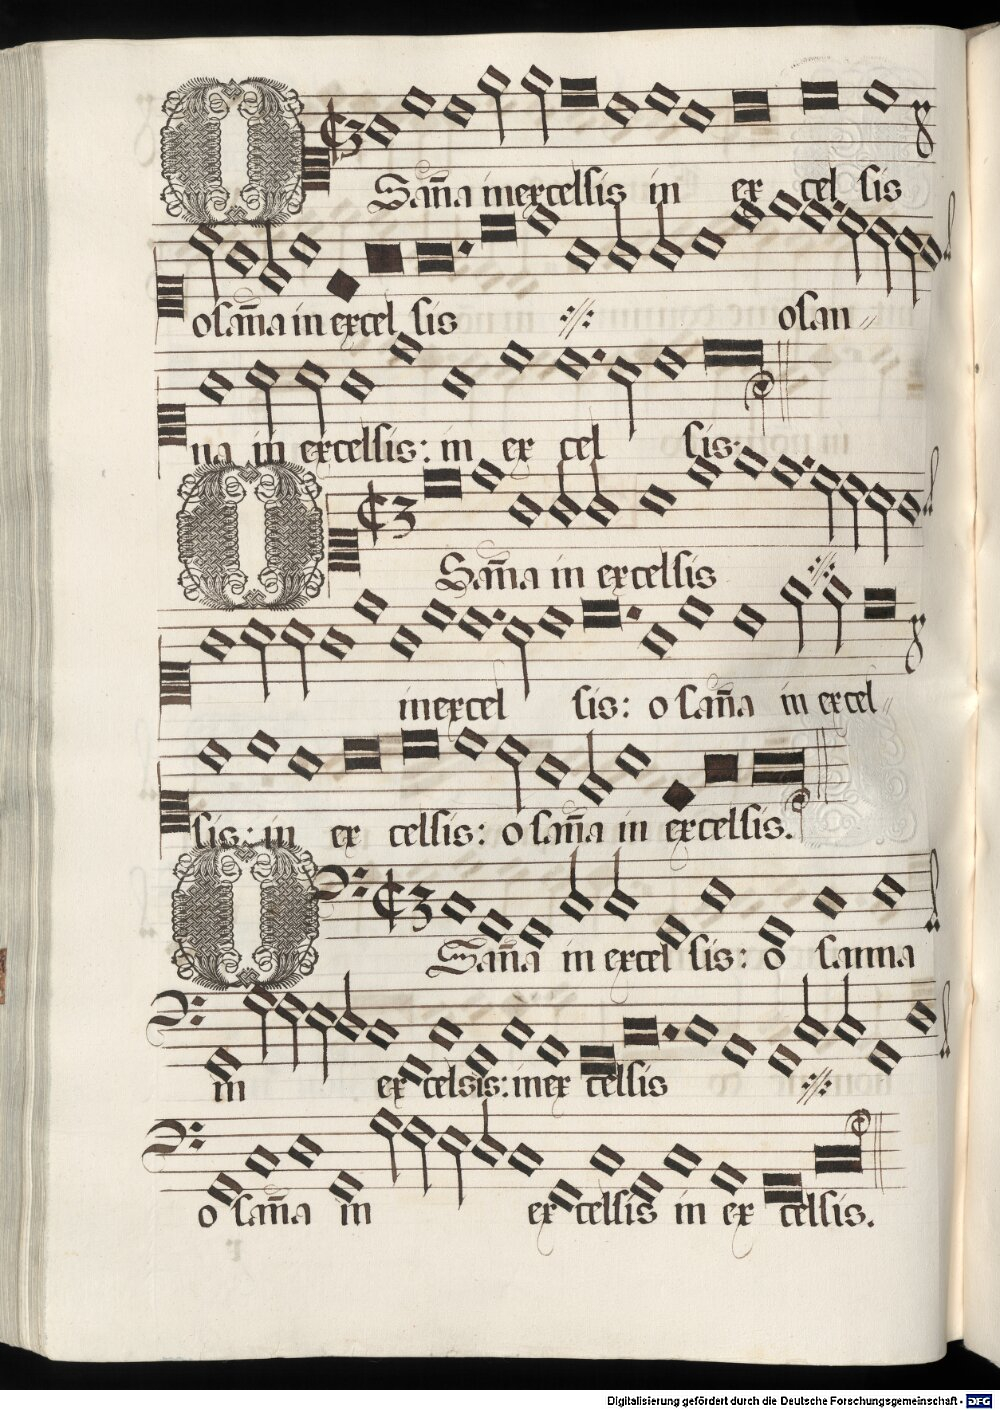 OSan̄a in excelsis in ex cel sis
osan̄a in excel sis ·//· osan〃
na in excelsis: in ex cel sis:
OSan̄a in excelsis ·//·
in excel sis: o san̄a in excel〃
sis: in ex celsis: o san̄a in excelsis.
OSan̄a in excel sis: o sanna
in ex celsis: in ex celsis ·//·
o san̄a in ex celsis in ex celsis.
Digitalisierung gefördert durch die Deutsche Forschungsgemeinschaft - DFG